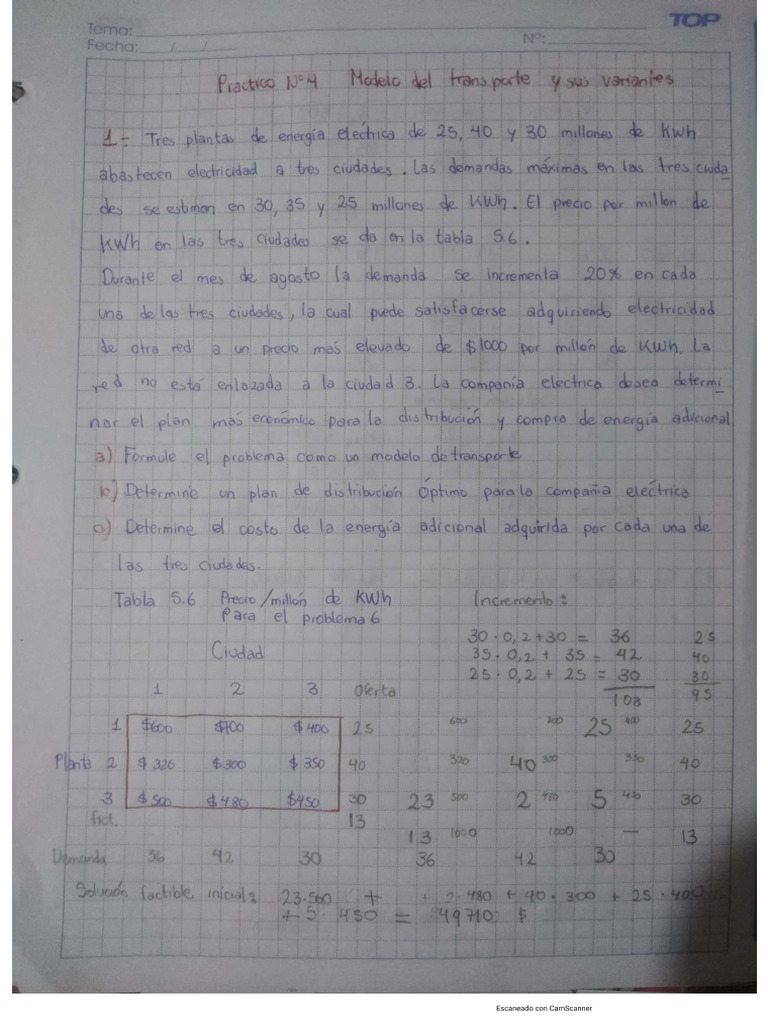 TOP
Tema:
Fecha: / /
Nº:
Practico Nº4 Modelo del transporte y sus variantes
1- Tres plantas de energía electrica de 25, 40 y 30 millones de KWh
abastecen electricidad a tres ciudades. Las demandas máximas en las tres ciuda
des se estiman en 30, 35 y 25 millones de KWh. El precio por millon de
KWh en las tres ciudades se da en la tabla 5.6.
Durante el mes de agosto la demanda se incrementa 20% en cada
una de las tres ciudades, la cual puede satisfacerse adquiriendo electricidad
de otra red a un precio más elevado de $1000 por millón de KWh. La
red no está enlazada a la ciudad 3. La compañía electrica desea determi
nar el plan más económico para la distribución y compra de energía adicional
a) Formule el problema como un modelo de transporte
b) Determine un plan de distribución óptimo para la compañia eléctrica
c) Determine el costo de la energía adicional adquirida por cada una de
las tres ciudades.
Tabla 5.6 Precio/millón de KWh
Para el problema 6
Incremento:
30 · 0,2 + 30 = 36 25
35 · 0,2 + 35 = 42 40
25 · 0,2 + 25 = 30 30
108 95
Ciudad
1 2 3 Oferta
1 $600 $700 $400 25 600 700 25 400 25
Planta 2 $320 $300 $350 40 320 40 300 350 40
3 $500 $480 $450 30 23 500 2 480 5 450 30
fict. 13 13 1000 1000 — 13
Demanda 36 42 30 36 42 30
Solución factible inicial: 23.500 + + 2.480 + 40.300 + 25.400
+ 5.450 = 49710 $
Escaneado con CamScanner